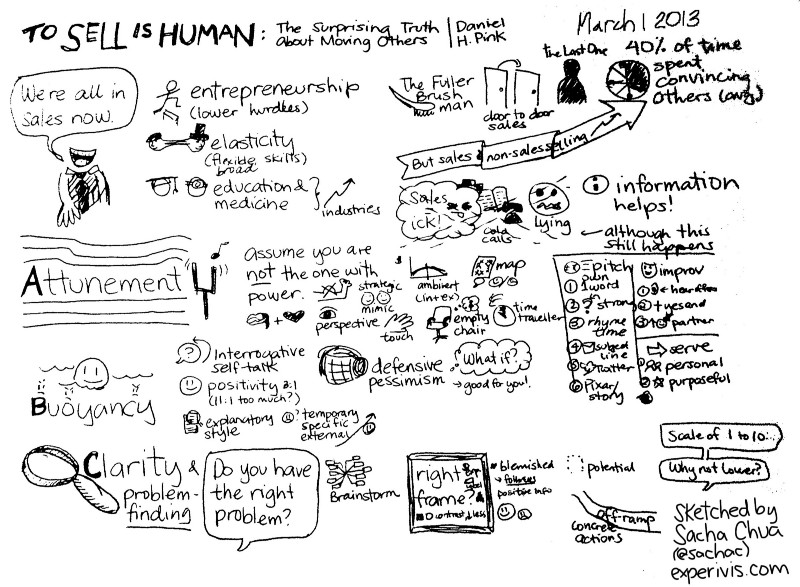 TO SELL IS HUMAN: The Surprising Truth
about Moving Others
Daniel
H. Pink
March 1 2013
We're all in
sales now.
entrepreneurship
(lower hurdles)
elasticity
(flexible skills)
broad
education &
medicine
industries
The Fuller
Brush
man
door to door
sales
the Last One
40% of time
spent
convincing
others (avg)
But sales
non-sales selling
Sales
ick!
cold
calls
Lying
information
helps!
although this
still happens
Attunement
assume you are
not the one with
power.
strategic
mimic
perspective
touch
ambivert
(int+ex)
map
empty
chair
time
traveller
pitch
own
1 1 word
2 ? strong
3 rhyme
time
4 subject
line
5 Twitter
6 Pixar/
story
improv
1 hear offers
2 + yes and
3 partner
serve
personal
2 purposeful
Buoyancy
? Interrogative
self-talk
positivity 3:1
(11:1 too much?)
explanatory
style
temporary
specific
external
defensive
pessimism
What if?
→ good for you!
Clarity &
problem-
finding
Do you have
the right
problem?
Brainstorm
right
frame?
contrast
less
blemished
follows
positive info
potential
off-ramp
concrete
actions
Scale of 1 to 10...
Why not lower?
Sketched by
Sacha Chua
(@sachac)
experivis.com